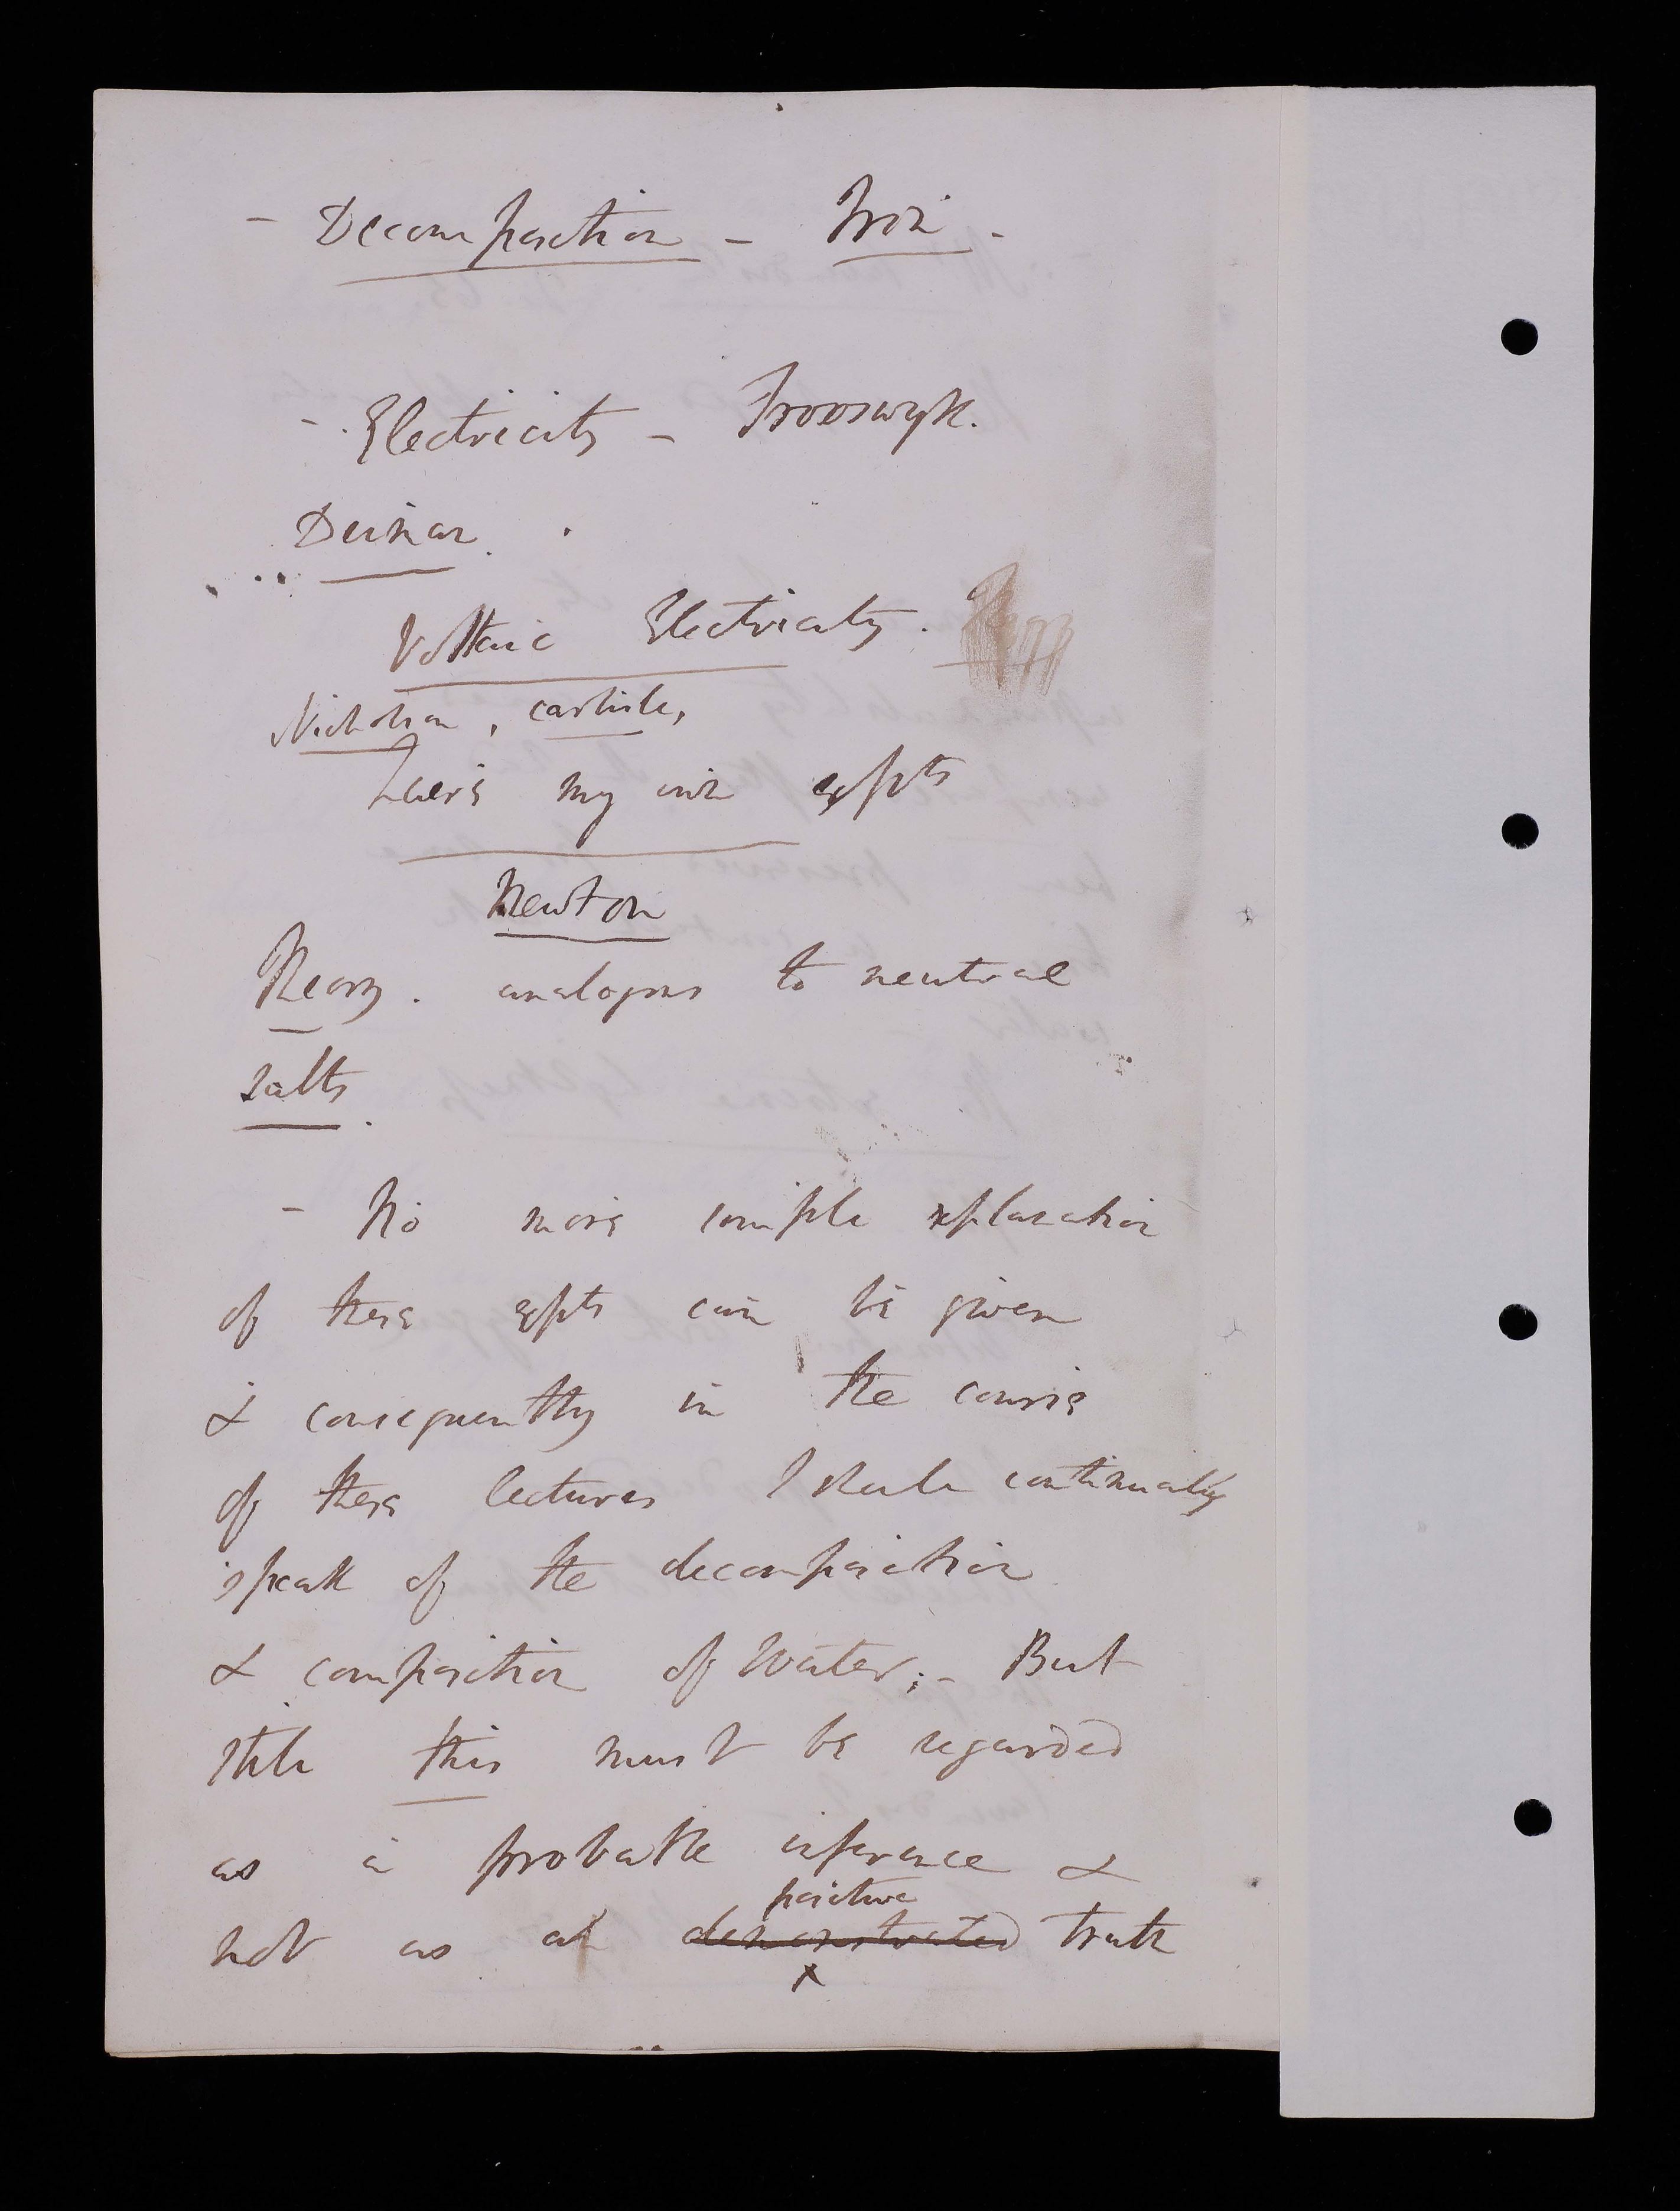 - Decomposition - Iron -
- Electricity - Trooswyk.
Deiman.
Voltaic Electricity.
Nicholson, Carlisle,
Here my own expts
Newton
Theory. analogous to neutral
salts.
- No more simple explanation
of these expts can be given
& consequently in the course
of these lectures I shall continually
speak of the decomposition
& composition of Water; - But
still this must be regarded
as a probable inference &
positive
not as a demonstrated truth
x